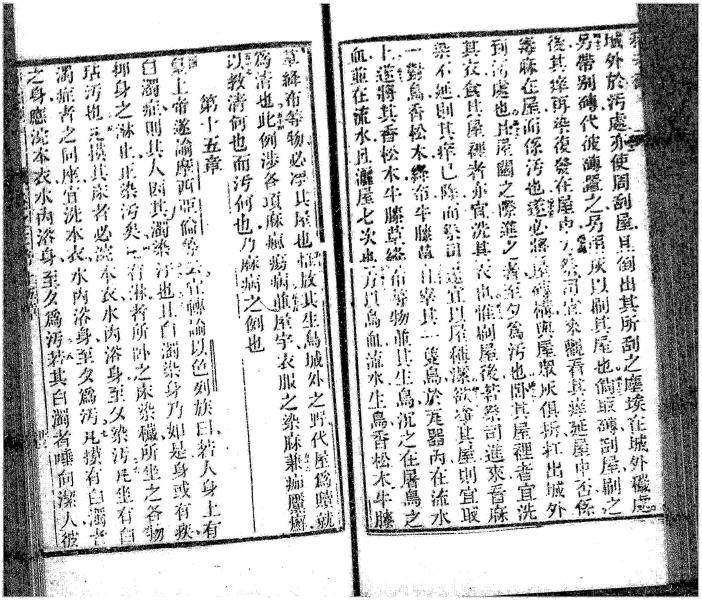 城外於污處亦使周刮屋且倒出其所刮之塵埃在城外穢處
另帶別磚代彼磚置之另用灰以刷其屋也倘取磚刮屋刷之
後其痒再染復發在屋內方祭司宜來觀看其痒延屋中否係
毒麻在屋而係污也遂必將屋磚橫與屋眾灰俱拆扛出城外
到污處也且屋關之際進之者至夕為污也臥其屋裡者宜洗
其衣食其屋裡者亦宜洗其衣也惟刷屋後若祭司進來看麻
染不延則其痒已除而祭司遂宜以屋稱潔欲淨其屋則宜取
一對鳥香松木絳布牛膝草且宰其一隻鳥於瓦器內在流水
上遂將其香松木牛膝草絳布等物並其生鳥沉之在屠鳥之
血並在流水且灑屋七次也方以鳥血流水生鳥香松木牛膝
草絳布等物必淨其屋也惟放其生鳥城外之野代屋為贖就
為潔也此例涉各項麻瘋瘍病並屋宇衣服之染麻兼痂靨癬
以教清何也而污何也乃麻病之例也
第十五章
皇上帝遂諭摩西亞倫等云宜轉諭以色列族曰若人身上有
白濁症則其人因其濁染污也且白濁染身乃如是身或有疾
抑身之淋止正染污矣有淋者所卧之床染穢所坐之各物
玷污也凡摸其床者必浣本衣水內浴身至夕染污凡坐有白
濁症者之何座宜洗本衣水內浴身至夕為污凡摸有白濁者
之身應浣本衣水內浴身至夕為污若其白濁者唾向潔人彼